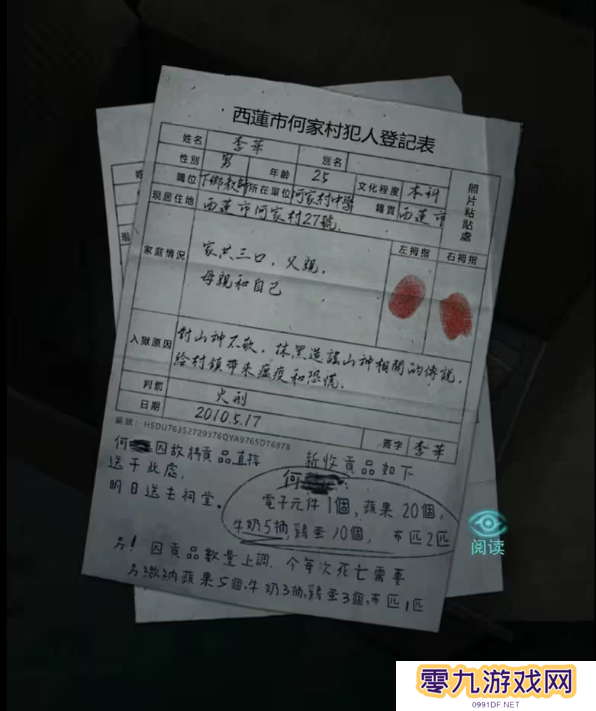 西蓮市何家村犯人登記表
姓名 李華 別名
性別 男 年齡 25 文化程度 本科
職位 下鄉教師 所在單位 何家村中學 籍貫 西蓮市
現居住地 西蓮市何家村27號
照片粘貼處
家庭情況 家共三口,父親,
母親和自己
左拇指 右拇指
入獄原因 對山神不敬,抹黑造謠山神相關的傳說,
給村鎮帶來瘟疫和恐慌,
判罰 火刑
日期 2010.5.17
編號:HSDU76352729376QYA9765D76978 簽字 李華
何 因故將貢品直接
送于此處,
明日送去祠堂。
新收貢品如下
何
電子元件1個,蘋果20個,
牛奶5抽,雞蛋10個,布匹2匹
另!因貢品數量上調,今每次死亡需要
另繳納蘋果5個,牛奶3抽,雞蛋3個,布匹1匹
阅读
零九游戏网
0991DF.NET